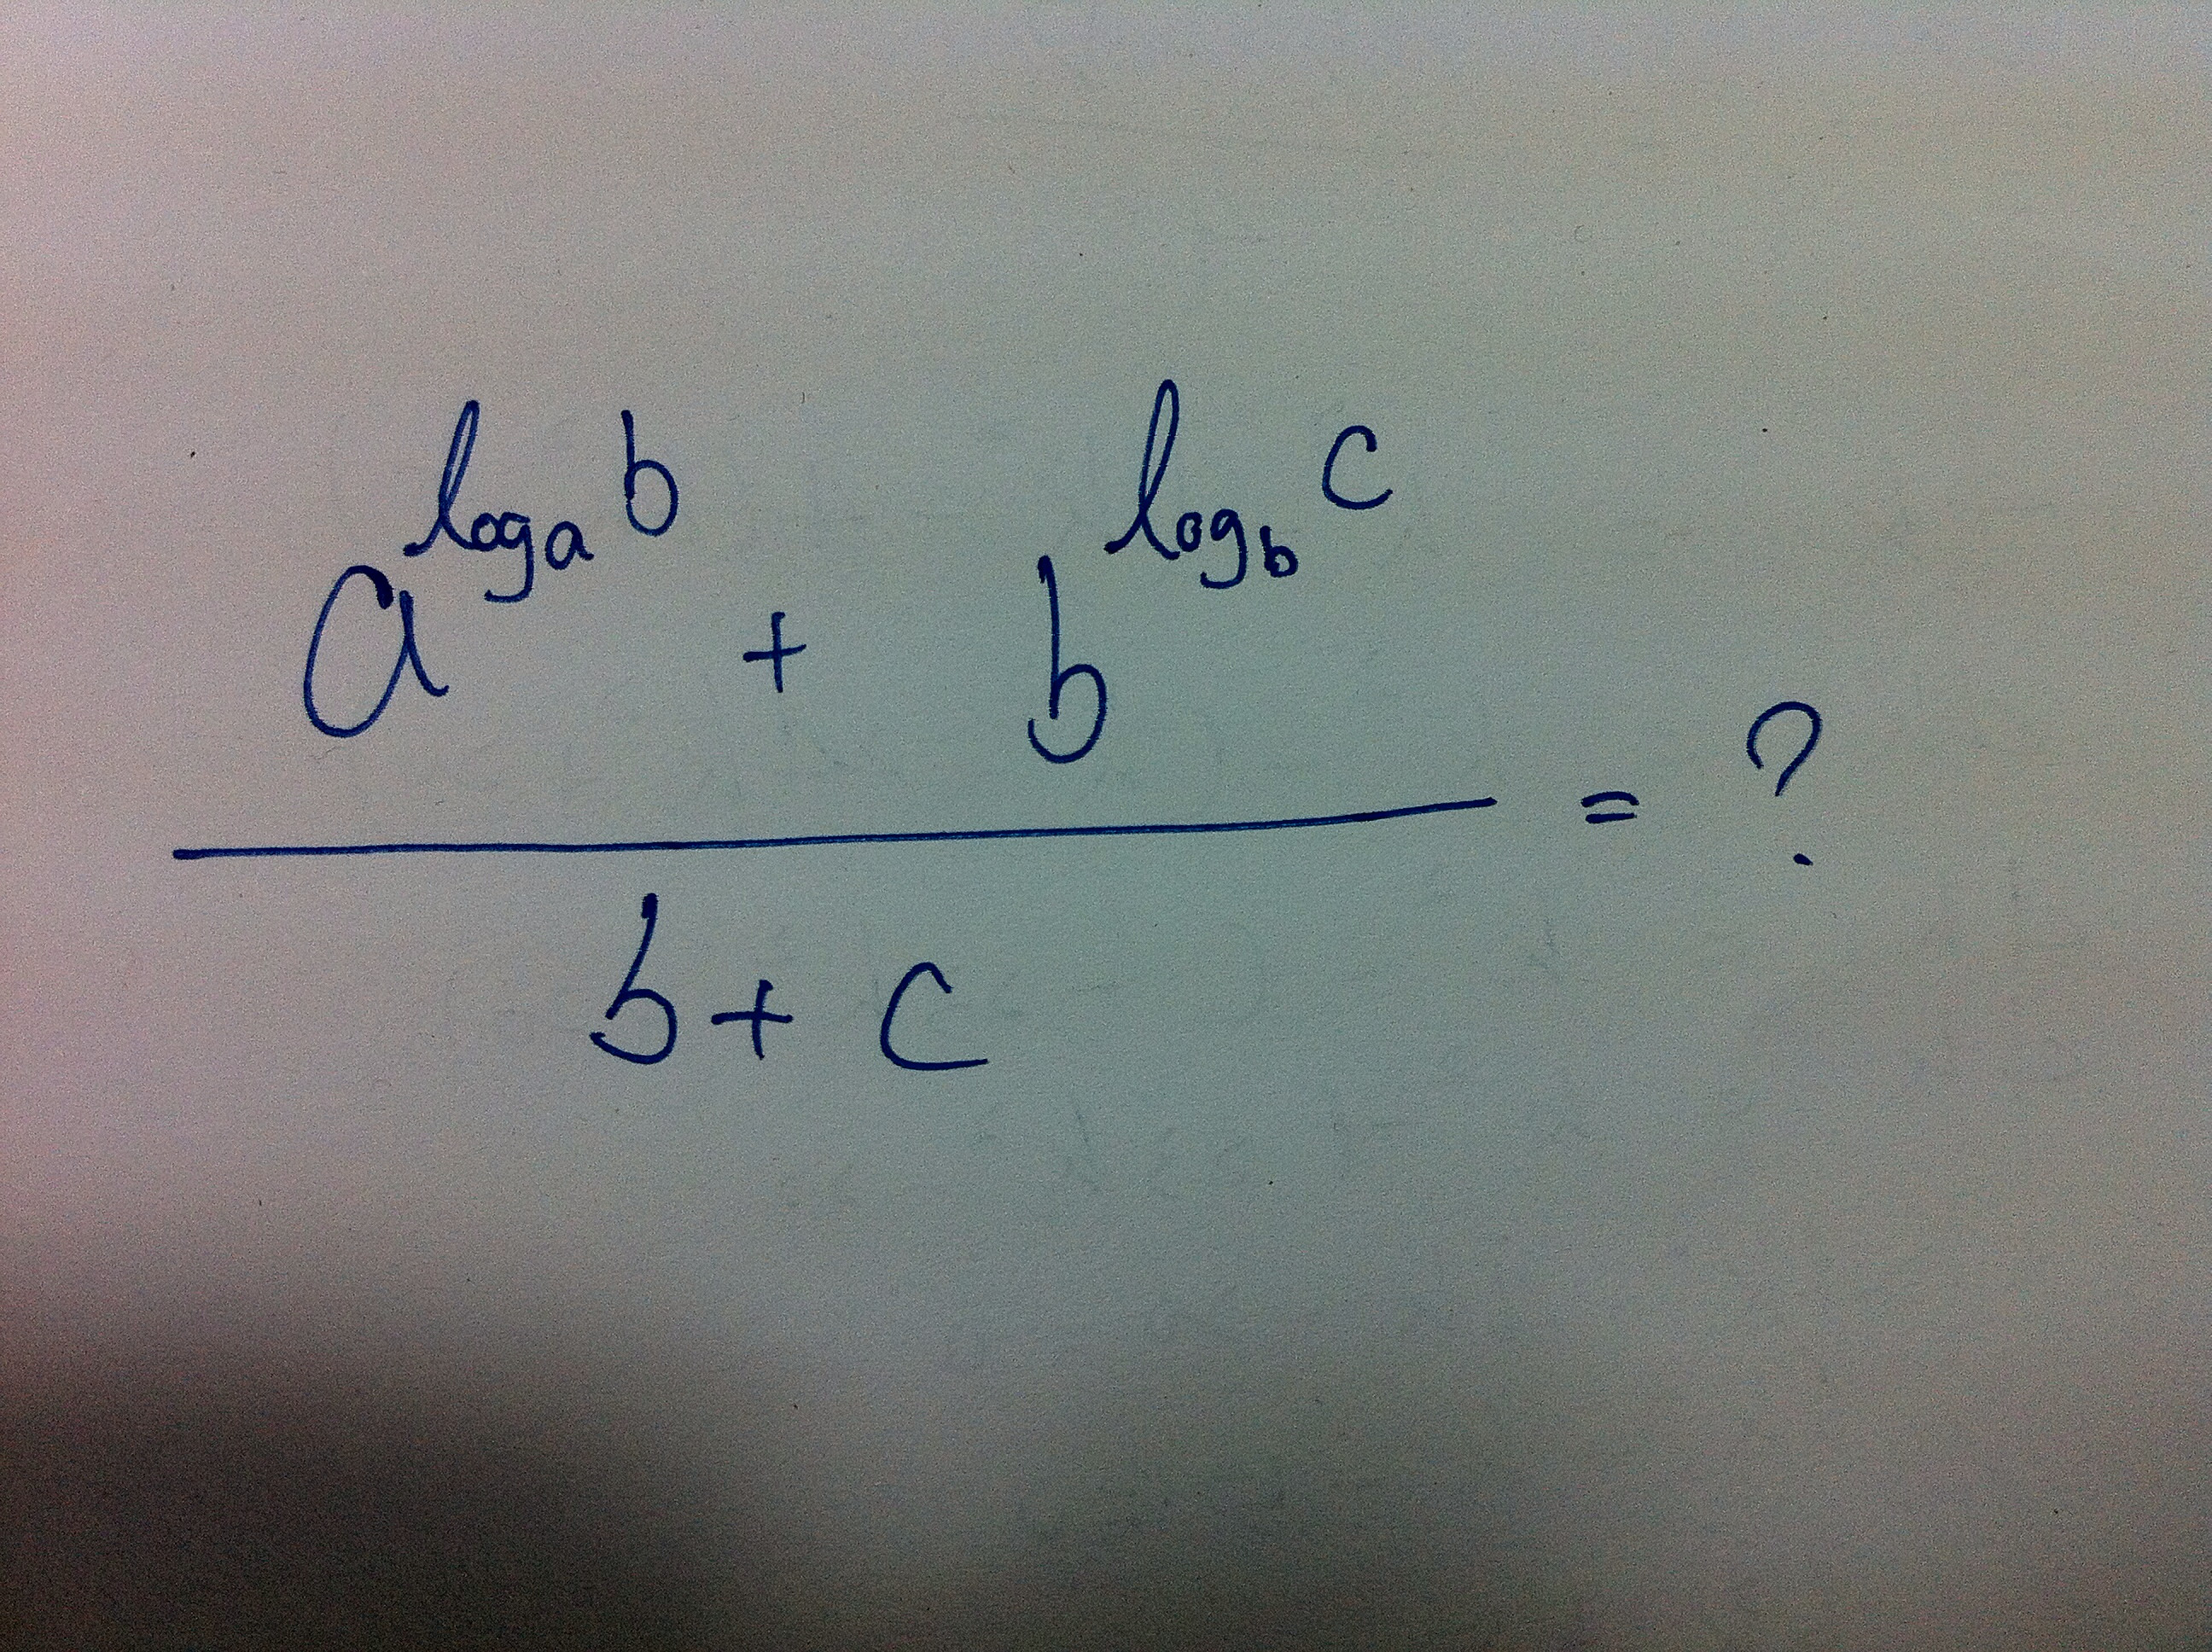 a^{log_a b} + b^{log_b c}
/ b + c = ?